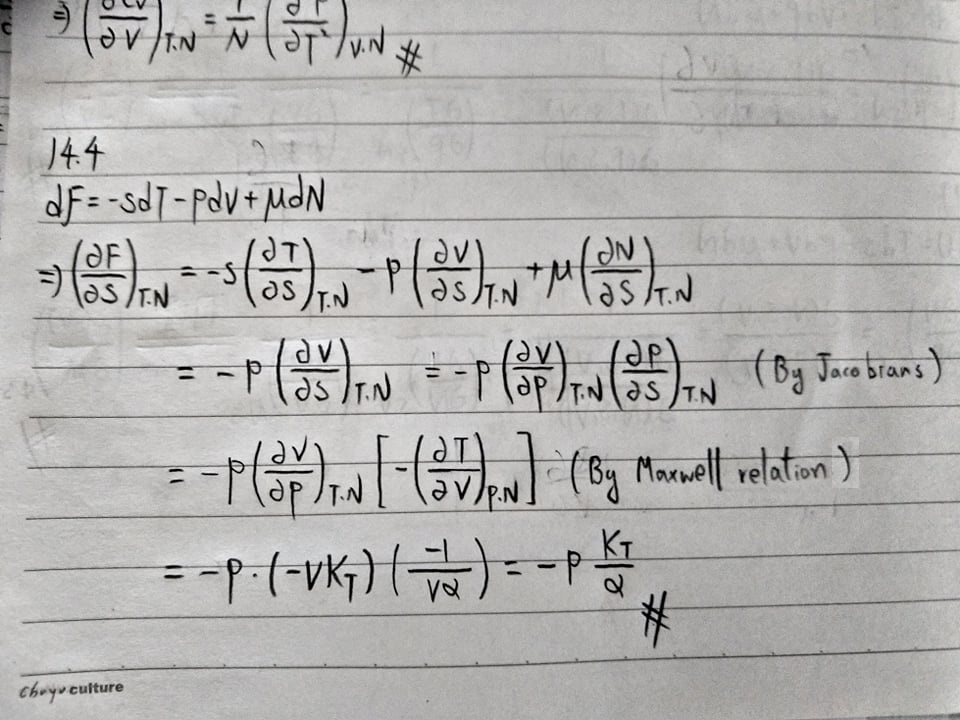 ⇒ (∂Cv/∂V)_T.N = 1/N (∂²P/∂T²)_V.N #
14.4
dF = -SdT - PdV + μdN
⇒ (∂F/∂S)_T.N = -S (∂T/∂S)_T.N - P (∂V/∂S)_T.N + μ (∂N/∂S)_T.N
= -P (∂V/∂S)_T.N = -P (∂V/∂P)_T.N (∂P/∂S)_T.N (By Jacobians)
= -P (∂V/∂P)_T.N [-(∂T/∂V)_P.N] (By Maxwell relation)
= -P · (-VK_T) (-1/Vα) = -P K_T/α #
Chuyu culture